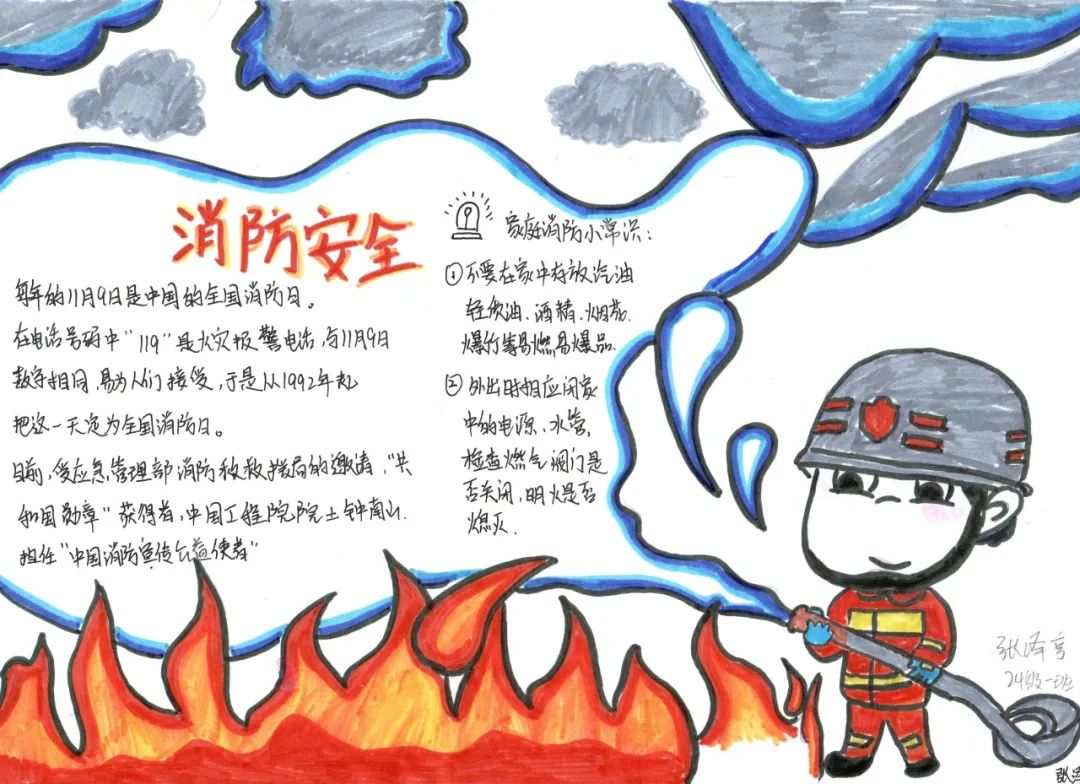 消防安全
每年的11月9日是中国的全国消防日。
在电话号码中“119”是火灾报警电话,与11月9日
数字相同,易为人们接受,于是从1992年起
把这一天定为全国消防日。
目前,受应急管理部消防救援局的邀请,“共
和国勋章”获得者,中国工程院院士钟南山.
担任“中国消防宣传公益使者”
家庭消防小常识:
①不要在家中存放汽油
轻质油、酒精、烟花.
爆竹等易燃易爆品.
②外出时相应闭家
中的电源、水管,
检查燃气阀门是
否关闭,明火是否
熄灭.
张泽亨
24级一班